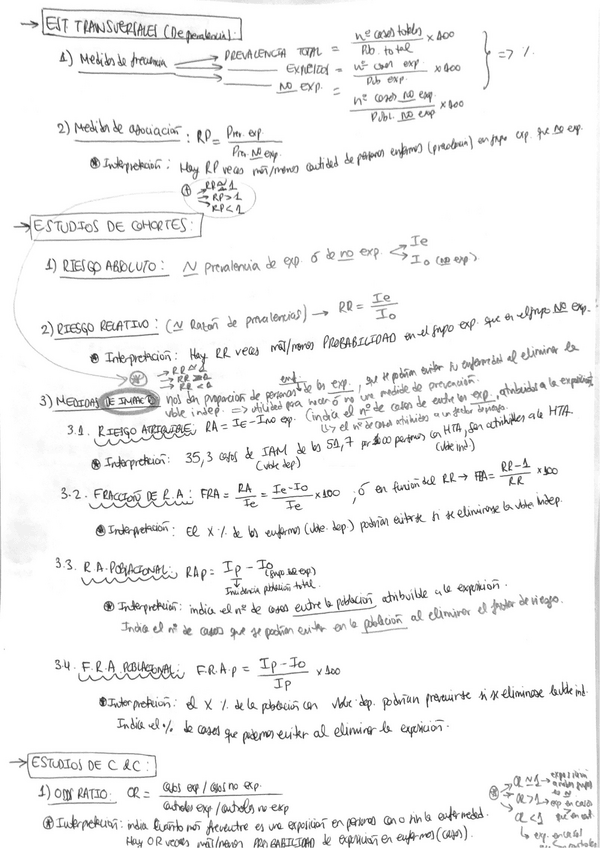 → EST. TRANSVERSALES (De prevalencia):
1) Medidas de frecuencia → PREVALENCIA TOTAL = nº casos totales / Pob. total × 100
EXPUESTOS = nº casos exp / Pob exp. × 100 => %
NO EXP. = nº casos NO exp. / Pobl. NO exp × 100
2) Medidas de asociación: RP = Prev. exp. / Prev. NO exp.
* Interpretación: Hay RP veces más/menos cantidad de personas enfermas (prevalencia) en grupo exp. que no exp.
* → RP ≃ 1
→ RP > 1
→ RP < 1
→ ESTUDIOS DE COHORTES:
1) RIESGO ABSOLUTO: ~ prevalencia de exp. ó de no exp. → Ie
→ Io (no exp)
2) RIESGO RELATIVO: (~ Razón de prevalencias) → RR = Ie / Io
* Interpretación: Hay RR veces más/menos PROBABILIDAD en el grupo exp. que en el grupo NO exp.
3) MEDIDAS DE IMPACTO: nos dan proporción de personas enf. de los exp., que se podrían evitar su enfermedad al eliminar la
vble indep. => utilidad para hacer ó no una medida de prevención.
3.1. RIESGO ATRIBUIBLE: RA = Ie - Ino exp. (indica el nº de casos de entre los exp., atribuidos a la exposición
* Interpretación: 35,3 casos de IAM de los 51,7 por 1000 personas con HTA, son atribuibles a la HTA.
(vble dep) (vble ind)
3.2. FRACCIÓN DE R.A: FRA = RA / Ie = Ie - Io / Ie × 100 ; ó en función del RR → FRA = RR - 1 / RR × 100
* Interpretación: El X % de los enfermos (vble. dep.) podrían evitarse si se eliminase la vble indep.
3.3. R.A. POBLACIONAL: RAp = Ip - Io (grupo no exp)
Incidencia población total.
* Interpretación: indica el nº de casos entre la población atribuible a la exposición.
Indica el nº de casos que se podrían evitar en la población al eliminar el factor de riesgo.
3.4. F.R.A POBLACIONAL: F.R.A.p = Ip - Io / Ip × 100
* Interpretación: el X % de la población con vble dep. podrían prevenirse si se eliminase la vble ind.
Indica el % de casos que podemos evitar al eliminar la exposición.
→ ESTUDIOS DE C&C:
1) ODDS RATIO: OR = casos exp / casos no exp. / controles exp / controles no exp
* OR ≃ 1 → exposición
OR > 1 → exp en casos
OR < 1
↳ exp. en casos
* Interpretación: indica cuánto más frecuente es una exposición en personas con o sin la enfermedad.
Hay OR veces más/menos PROBABILIDAD de exposición en enfermos (casos).